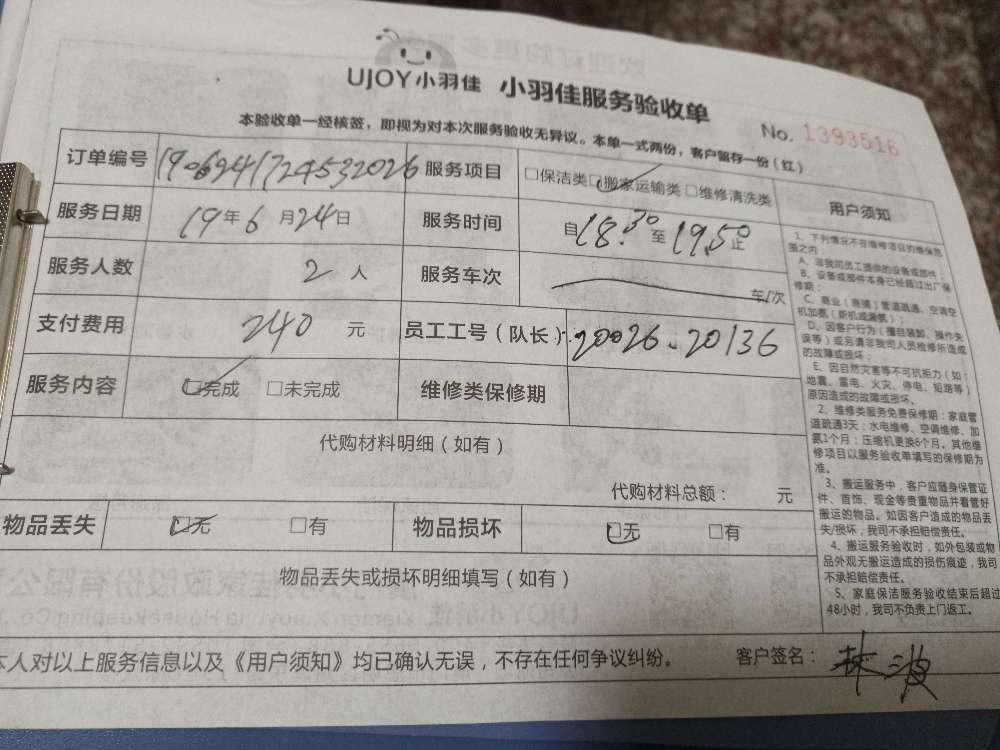 UJOY小羽佳 小羽佳服务验收单
No. 1393516
本验收单一经核签，即视为对本次服务验收无异议。本单一式两份，客户留存一份（红）
订单编号 1906241724532026 服务项目 □保洁类□搬家运输类□维修清洗类
服务日期 19年6月24日 服务时间 自18:30至19.50止
服务人数 2人 服务车次 车/次
支付费用 240元 员工工号（队长）：20026、20136
服务内容 □完成 □未完成 维修类保修期
代购材料明细（如有）
代购材料总额： 元
物品丢失 □无 □有 物品损坏 □无 □有
物品丢失或损坏明细填写（如有）
用户须知
1、下列情况不在维修项目的维保范
围之内：
A、非我司员工提供的设备或部件；
B、设备或部件本身已经超过出厂保
修期；
C、商业（商铺）管道疏通、空调空
机加氨（新机或漏氨）；
D、因客户行为（擅自装卸、操作失
误等）或另请非我司人员检修所造成
的故障或损坏；
E、因自然灾害等不可抗拒力（如：
地震、雷电、火灾、停电、短路等）
原因造成的故障或损坏。
2、维修类服务免费保修期：家庭管
道疏通3天；水电维修、空调维修、加
氨1个月；压缩机更换6个月。其他维
修项目以服务验收单填写的保修期为
准。
3、搬运服务中，客户应随身保管证
件、首饰、现金等贵重物品并看管好
搬运的物品。如因客户造成的物品丢
失/损坏，我司不承担赔偿责任。
4、搬运服务验收时，如外包装或物
品外观无搬运造成的损伤痕迹，我司
不承担赔偿责任。
5、家庭保洁服务验收结束后超过
48小时，我司不负责上门返工。
本人对以上服务信息以及《用户须知》均已确认无误，不存在任何争议纠纷。 客户签名：林波